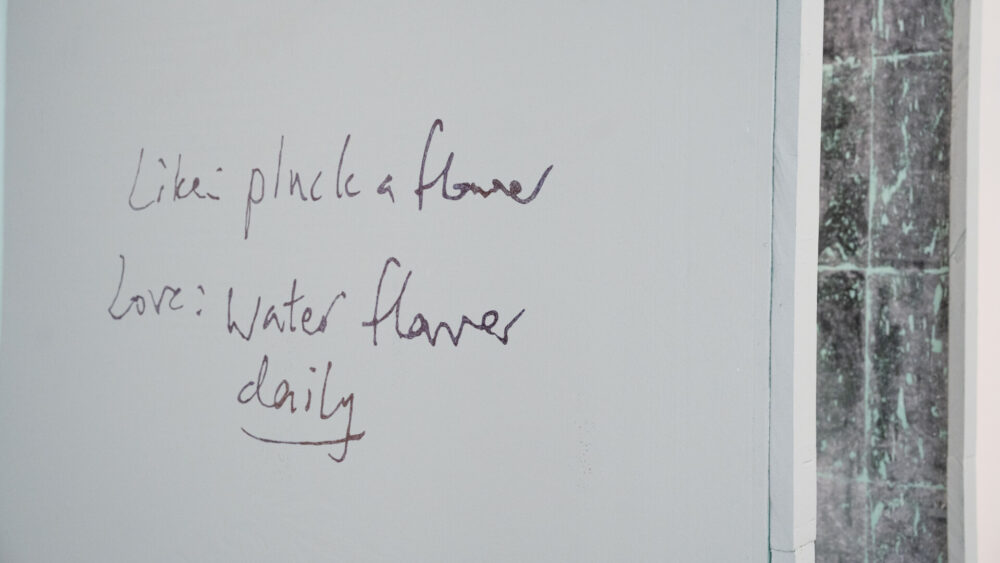 Like: pluck a flower
Love: Water flower
daily